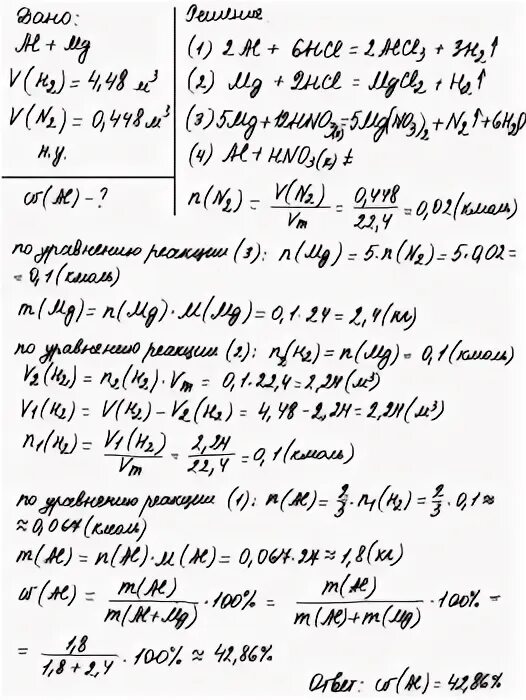 Дано:
Al + Mg
V(H₂) = 4,48 м³
V(N₂) = 0,448 м³
н.у.
ω(Al) - ?
Решение
(1) 2Al + 6HCl = 2AlCl₃ + 3H₂↑
(2) Mg + 2HCl = MgCl₂ + H₂↑
(3) 5Mg + 12HNO₃ = 5Mg(NO₃)₂ + N₂↑ + 6H₂O
(4) Al + HNO₃(к) ≠
n(N₂) = V(N₂)/Vm = 0,448/22,4 = 0,02 (кмоль)
по уравнению реакции (3): n(Mg) = 5·n(N₂) = 5·0,02 =
= 0,1 (кмоль)
m(Mg) = n(Mg)·M(Mg) = 0,1·24 = 2,4 (кг)
по уравнению реакции (2): n₂(H₂) = n(Mg) = 0,1 (кмоль)
V₂(H₂) = n₂(H₂)·Vm = 0,1·22,4 = 2,24 (м³)
V₁(H₂) = V(H₂) - V₂(H₂) = 4,48 - 2,24 = 2,24 (м³)
n₁(H₂) = V₁(H₂)/Vm = 2,24/22,4 = 0,1 (кмоль)
по уравнению реакции (1): n(Al) = 2/3·n₁(H₂) = 2/3·0,1 ≈
≈ 0,067 (кмоль)
m(Al) = n(Al)·M(Al) = 0,067·27 ≈ 1,8 (кг)
ω(Al) = m(Al)/m(Al+Mg)·100% = m(Al)/m(Al)+m(Mg)·100% =
= 1,8/1,8+2,4·100% ≈ 42,86%
Ответ: ω(Al) = 42,86%